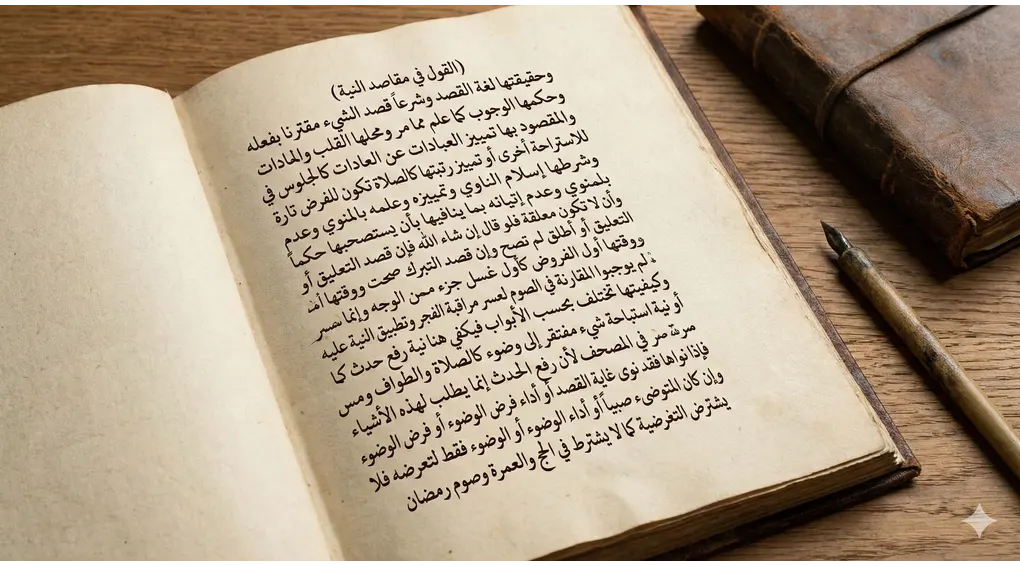 (القول في مقاصد النية)
وحقيقتها لغة القصد وشرعاً قصد الشيء مقترنا بفعله
وحكمها الوجوب كما علم مما مر ومحلها القلب والمادات
والمقصود بها تمييز العبادات عن العادات كالجلوس في
للاستراحة أخرى أو تمييز رتبتها كالصلاة تكون للفرض تارة
وشرطها إسلام الناوي وتمييزه وعلمه بالمنوي وعدم
بلمنوي وعدم إتيانه بما ينافيها بأن يستصحبها حكماً
وأن لا تكون معلقة فلو قال إن شاء الله فإن قصد التعليق أو
التعليق أو أطلق لم تصح وإن قصد التبرك صحت ووقتها
ووقتها أول الفروض كأول غسل جزء من الوجه وإنما
لم يوجبوا المقارنة في الصوم لعسر مراقبة الفجر وتطبيق النية عليه
وكيفيتها تختلف بحسب الأبواب فيكفي هنا نية رفع حدث كما
أو نية استباحة شيء مفتقر إلى وضوء كالصلاة والطواف ومس
في المصحف لأن رفع الحدث إنما يطلب لهذه الأشياء
فإذا نواها فقد نوى غاية القصد أو أداء فرض الوضوء أو فرض الوضوء
وإن كان المتوضىء صبياً أو أداء الوضوء أو الوضوء فقط لتعرضه فلا
يشترض التعرضية كما لا يشترط في الحج والعمرة وصوم رمضان